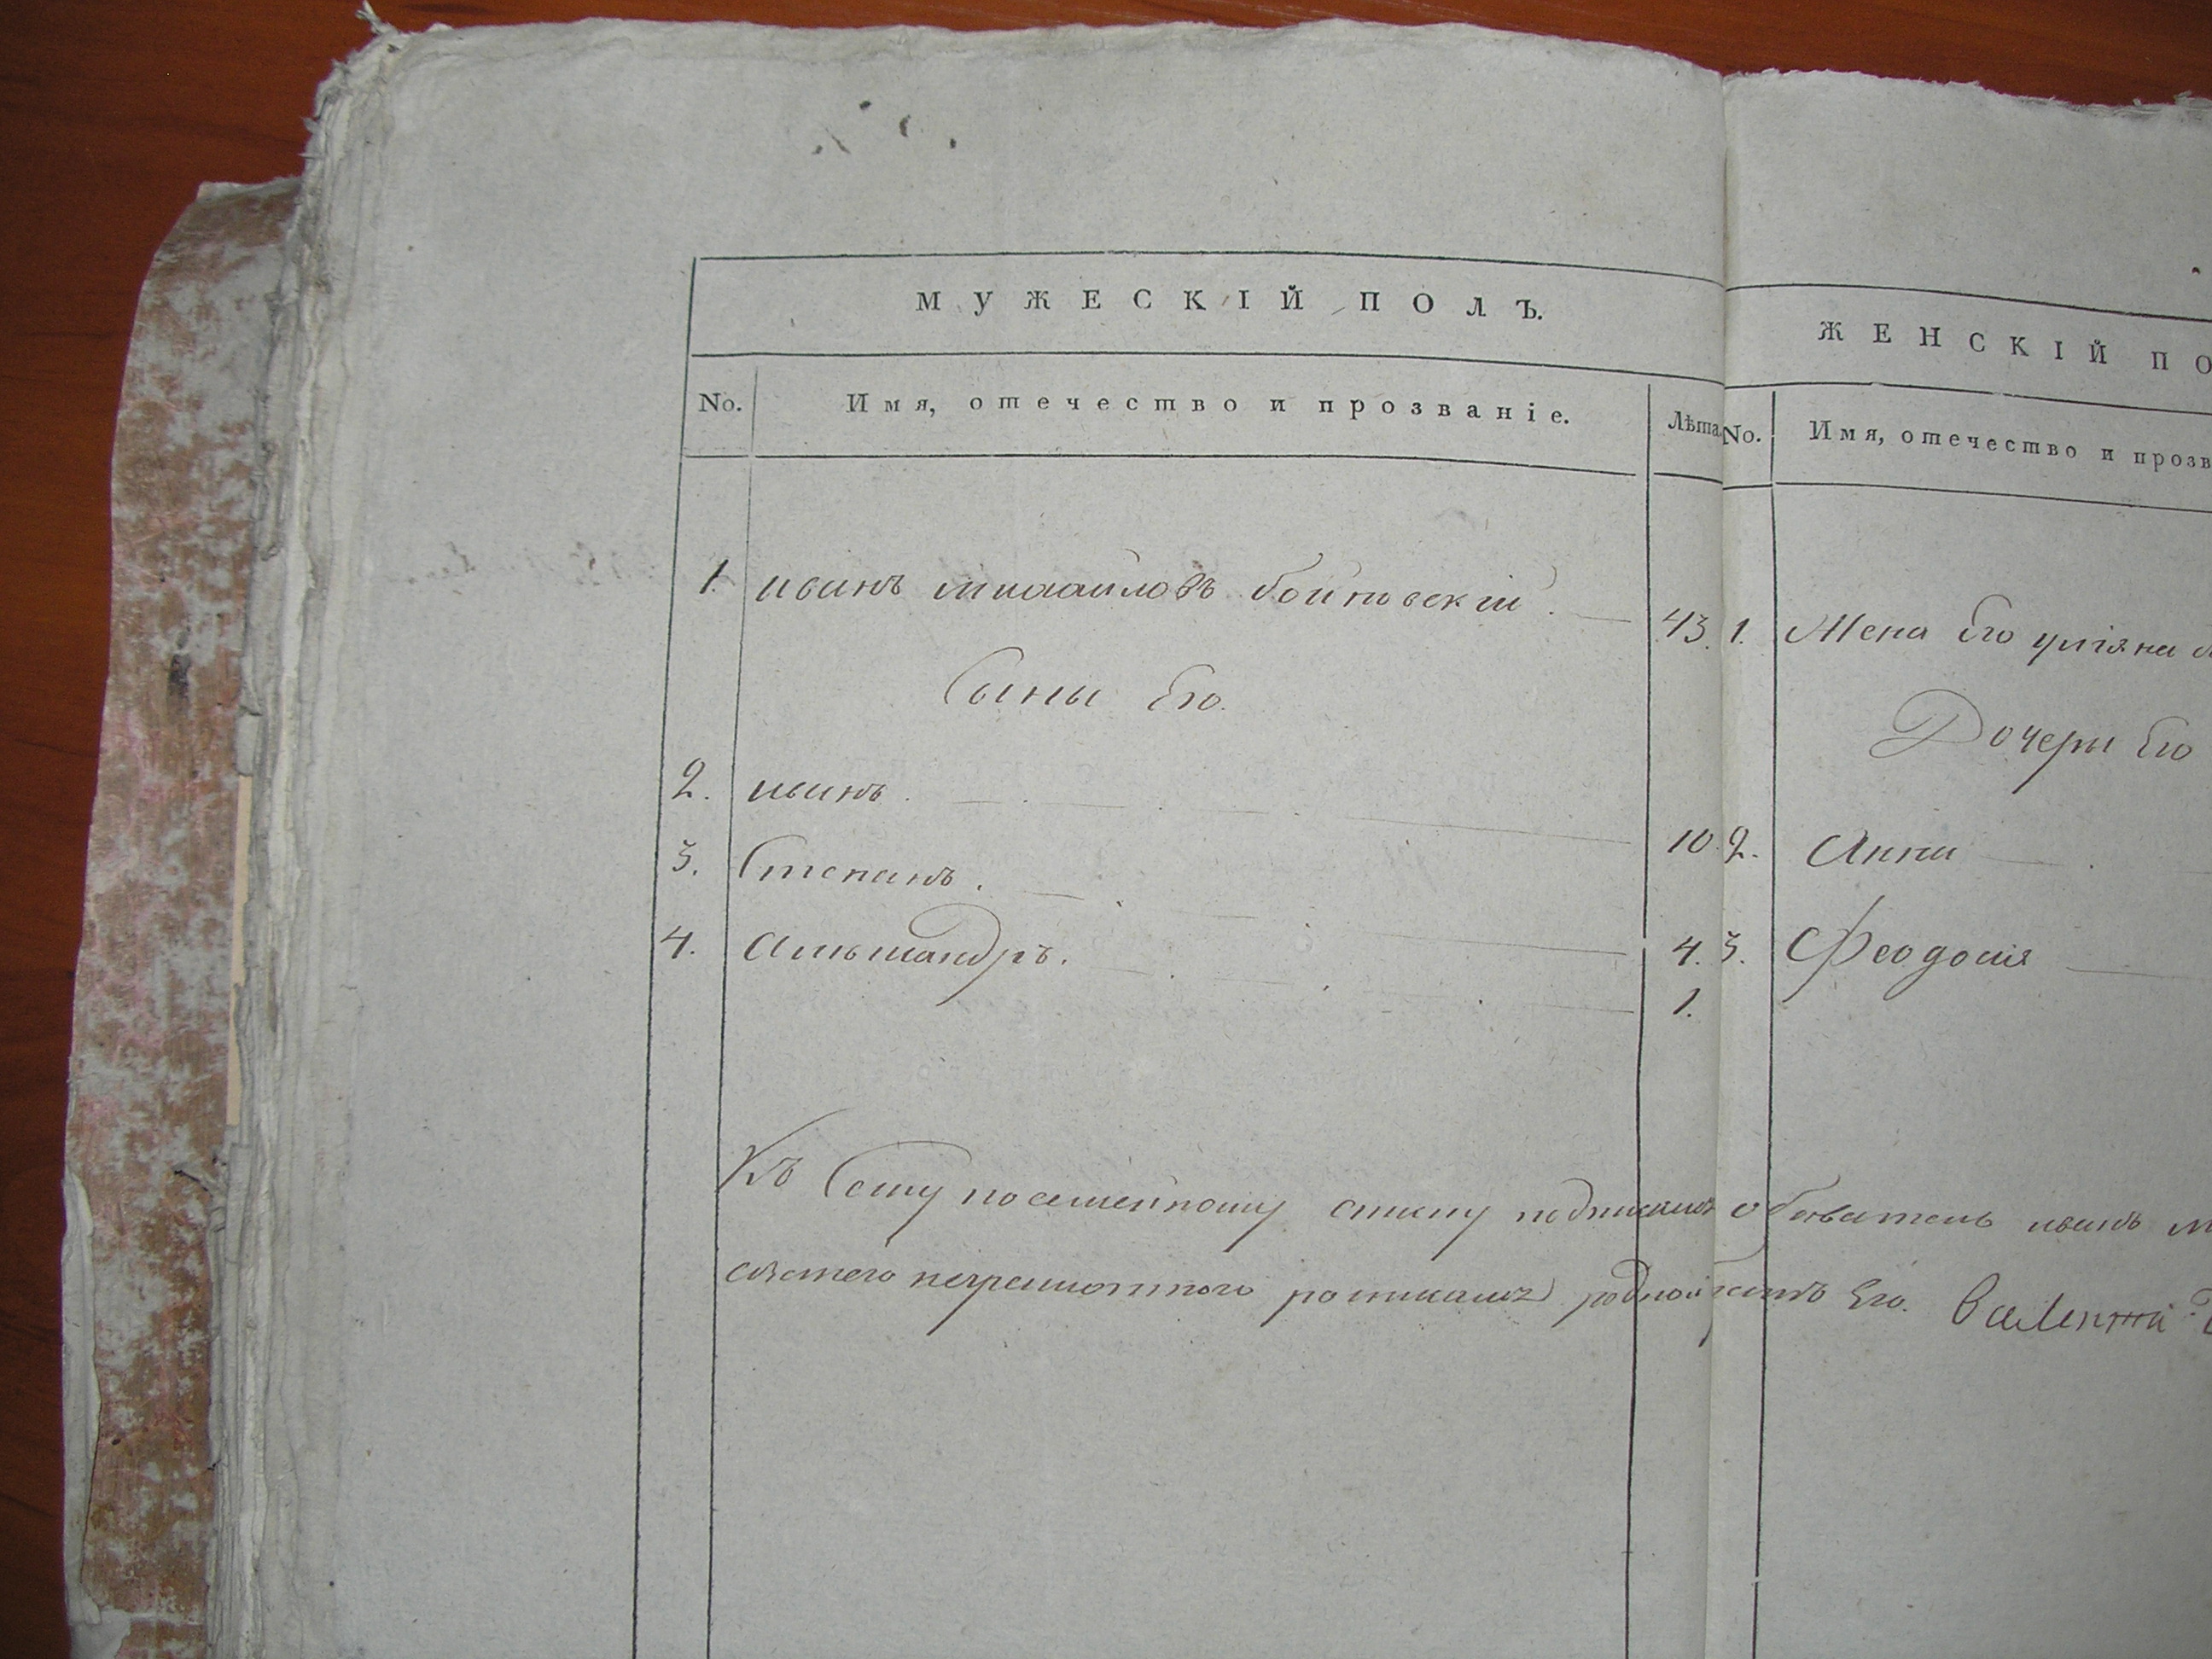 МУЖЕСКІЙ ПОЛЪ.
No. Имя, отечество и прозваніе. Лѣта.
1. иванъ михаиловъ бойковскій 43.
Сыны Его.
2. иванъ 10.
3. Степанъ. 4.
4. Александръ. 1.
ЖЕНСКІЙ ПО
No. Имя, отечество и прозв
1. Жена Его уліяна
Дочери Его
2. Анна
3. Феодосия
Къ Сему посемейному списку подписался обыватель иванъ м
неграмотного росписался родной Его.